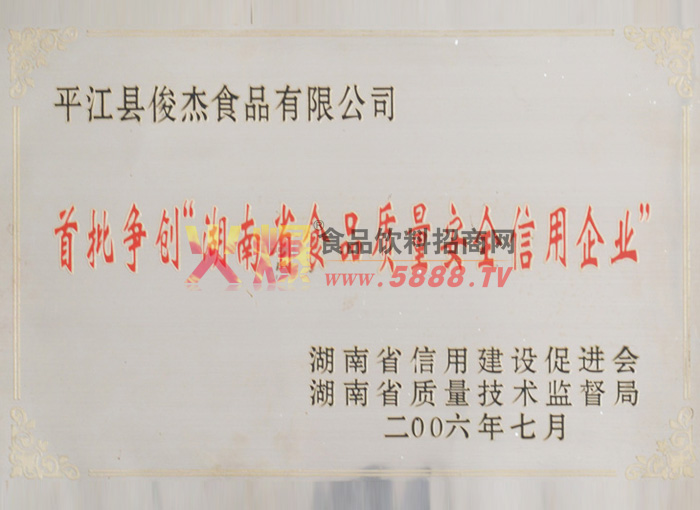 平江县俊杰食品有限公司
首批争创“湖南省食品质量安全信用企业”
火爆®食品饮料招商网
www.5888.TV
湖南省信用建设促进会
湖南省质量技术监督局
二00六年七月